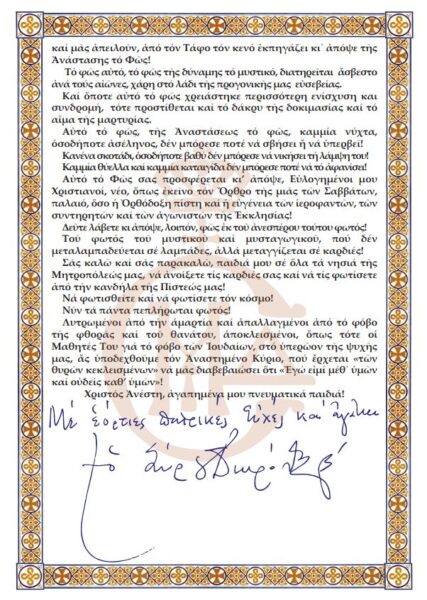 καί μᾶς ἀπειλοῦν, ἀπό τόν Τάφο τόν κενό ἐκπηγάζει κι᾿ ἀπόψε τῆς
Ἀνάστασης τό Φῶς!
Τό φῶς αὐτό, τό φῶς τῆς δύναμης τό μυστικό, διατηρεῖται ἄσβεστο
ἀνά τούς αἰῶνες, χάρη στό λάδι τῆς προγονικῆς μας εὐσεβείας.
Καί ὅποτε αὐτό τό φῶς χρειάστηκε περισσότερη ἐνίσχυση καί
συνδρομή, τότε προστίθεται καί τό δάκρυ τῆς δοκιμασίας καί τό
αἷμα τῆς μαρτυρίας.
Αὐτό τό φῶς, τῆς Ἀναστάσεως τό φῶς, καμμία νύχτα,
ὁσοδήποτε ἀσέληνος, δέν μπόρεσε ποτέ νά σβήσει ἤ νά ὑπερβεῖ!
Κανένα σκοτάδι, ὁσοδήποτε βαθύ δέν μπόρεσε νά νικήσει τή λάμψη του!
Καμμία θύελλα καί καμμία καταιγίδα δέν μπόρεσε ποτέ νά τό ἀφανίσει!
Αὐτό τό Φῶς σας προσφέρεται κι᾿ ἀπόψε, Εὐλογημένοι μου
Χριστιανοί, νέο, ὅπως ἐκεῖνο τόν Ὄρθρο τῆς μιᾶς τῶν Σαββάτων,
παλαιό, ὅσο ἡ Ὀρθόδοξη πίστη καί ἡ εὐγένεια τῶν ἱεροφαντῶν, τῶν
συντηρητῶν καί τῶν ἀγωνιστῶν τῆς Ἐκκλησίας!
Δεῦτε λάβετε κι ἀπόψε, λοιπόν, φῶς ἐκ τοῦ ἀνεσπέρου τούτου φωτός!
Τοῦ φωτός τοῦ μυστικοῦ καί μυσταγωγικοῦ, πού δέν
μεταλαμπαδεύεται σέ λαμπάδες, ἀλλά μεταγγίζεται σέ καρδιές!
Σᾶς καλῶ καί σᾶς παρακαλῶ, παιδιά μου σέ ὅλα τά νησιά τῆς
Μητροπόλεώς μας, ν᾿ ἀνοίξετε τίς καρδιές σας καί νά τίς φωτίσετε
ἀπό τήν κανδήλα τῆς Πίστεώς μας!
Νά φωτισθεῖτε καί νά φωτίσετε τόν κόσμο!
Νῦν τά πάντα πεπλήρωται φωτός!
Λυτρωμένοι ἀπό τήν ἁμαρτία καί ἀπαλλαγμένοι ἀπό τό φόβο
τῆς φθορᾶς καί τοῦ θανάτου, ἀποκλεισμένοι, ὅπως τότε οἱ
Μαθητές Του γιά τό φόβο τῶν Ἰουδαίων, στό ὑπερῶον τῆς ψυχῆς
μας, ἄς ὑποδεχθοῦμε τόν Ἀναστημένο Κύριο, πού ἔρχεται «τῶν
θυρῶν κεκλεισμένων» νά μᾶς διαβεβαιώσει ὅτι «Ἐγώ εἰμί μέθ᾿ ὑμῶν
καί οὐδείς καθ᾿ ὑμῶν»!
Χριστός Ἀνέστη, ἀγαπημένα μου πνευματικά παιδιά!
Μέ ἑόρτιες πατρικές εὐχές καί ἀγάπη